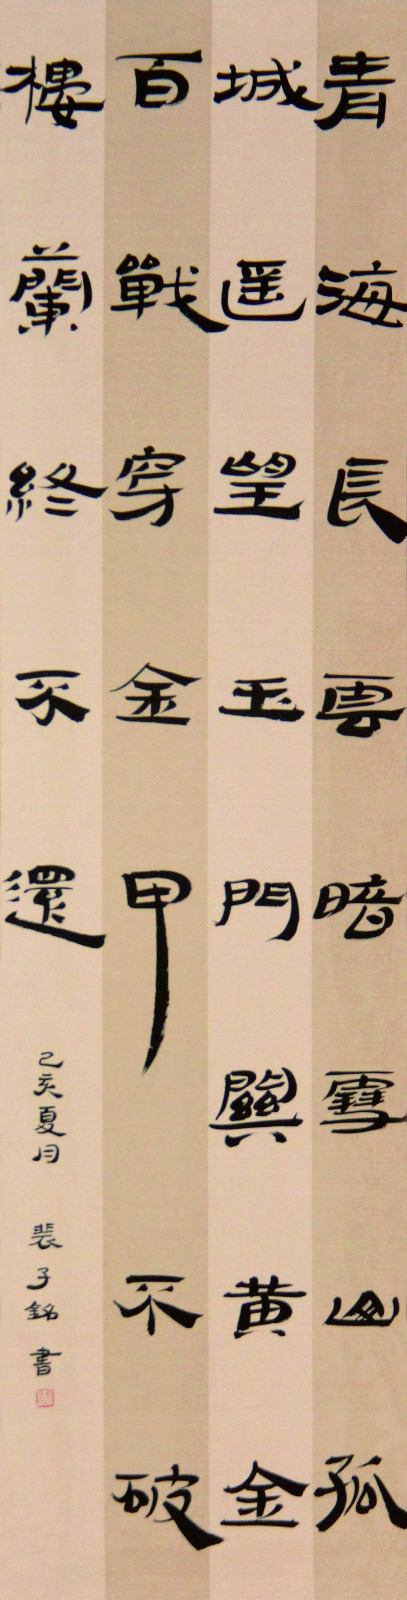 青海長雲暗雪山孤
城遥望玉門關黄金
百戰穿金甲不破
樓蘭終不還
己亥夏月 裴子銘書